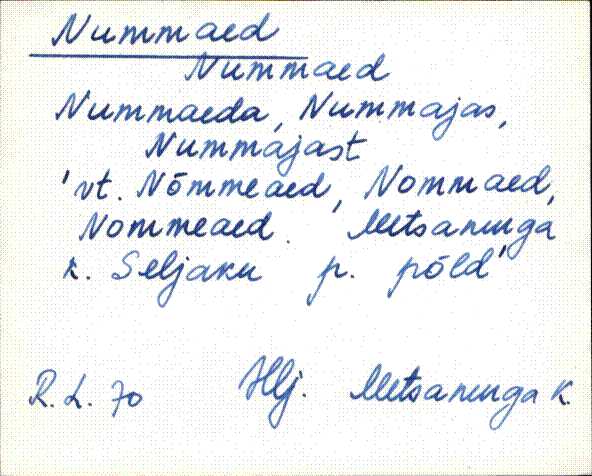 Nummaed
Nummaed
Nummaeda, Nummajas,
Nummajast
'vt. Nõmmeaed, Nommaed,
Nommeaed. Metsanurga
k. Seljaku p. põld'
R. L. 70 Hlj. Metsanurga k.